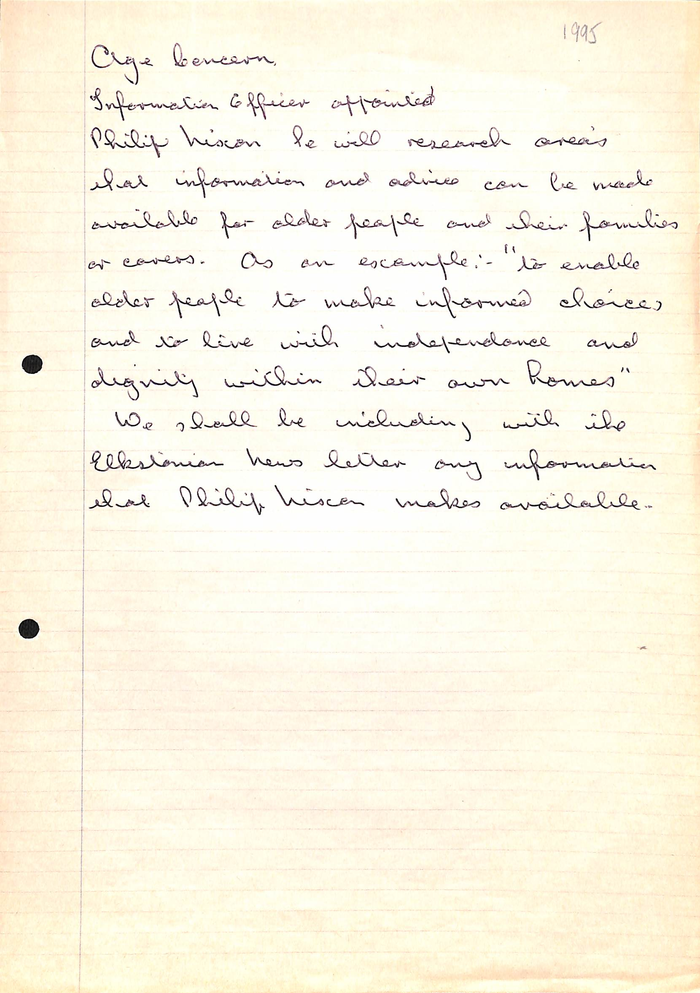 1995
Age Concern.
Information Officer appointed
Philip Nixon he will research area's
that information and advice can be made
available for older people and their families
or carers. As an example:- "to enable
older people to make informed choices
and to live with independance and
dignity within their own homes"
We shall be including with the
Elkstonian News letter any information
that Philip Nixon makes available.